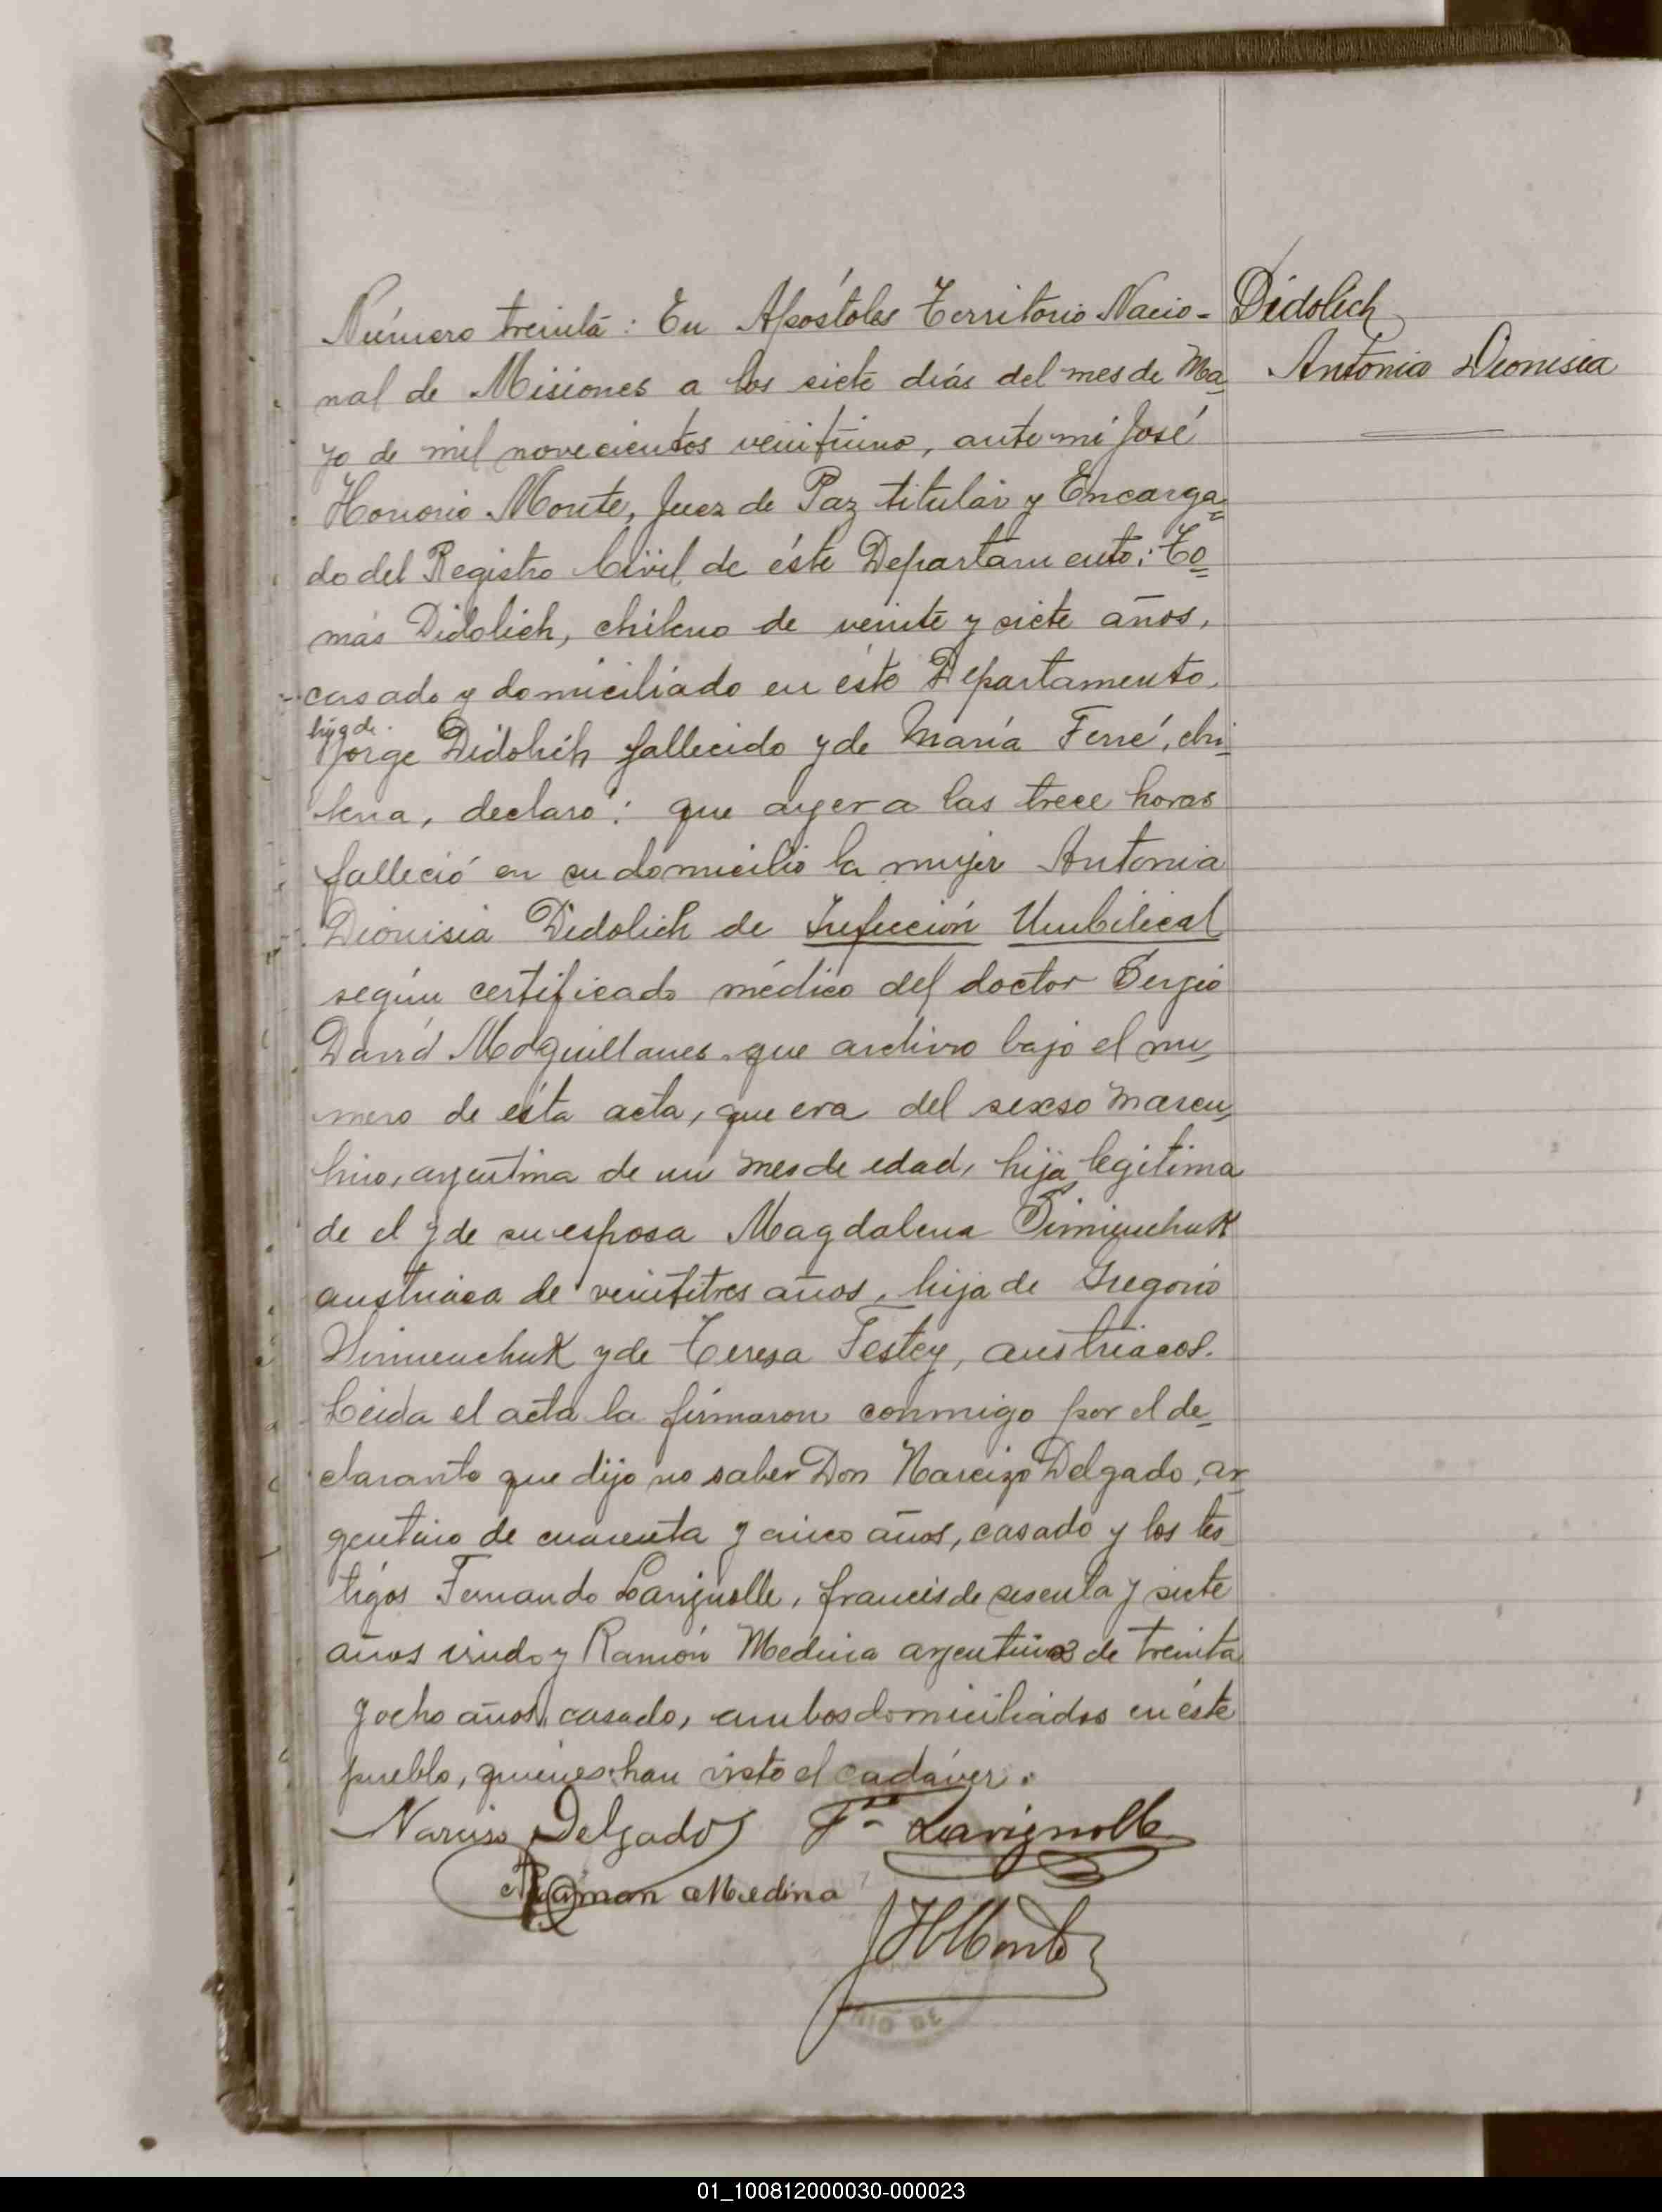 Número treinta: En Apóstoles Territorio Nacio-
Didolich
Antonia Dionisia
nal de Misiones a los siete días del mes de Ma-
yo de mil novecientos veintiuno, ante mi José
Honorio Monte, Juez de Paz titular y Encarga=
do del Registro Civil de éste Departamento: To=
más Didolich, chileno de veinte y siete años,
casado y domiciliado en éste Departamento,
hijo de
Jorge Didolich fallecido y de María Ferré, chi-
lena, declaró: que ayer a las trece horas
falleció en su domicilio la mujer Antonia
Dionisia Didolich de Infección Umbilical
según certificado médico del doctor Sergio
David Moguillanes que archivo bajo el nu-
mero de ésta acta, que era del sexso mascu-
lino, argentina de un mes de edad, hija legitima
de el y de su esposa Magdalena Simienchuk
austriaca de veintitres años, hija de Gregorio
Simienchuk y de Teresa Festey, austriacos.
Leida el acta la firmaron conmigo por el de-
clarante que dijo no saber Don Narcizo Delgado, ar-
gentino de cuarenta y cinco años, casado y los tes-
tigos Fernando Lavignolle, francés de sesenta y siete
años viudo y Ramón Medina argentino de treinta
y ocho años, casado, ambos domiciliados en éste
pueblo, quienes han visto el cadáver.
Narciso Delgado F. Lavignolle
Ramon Medina
JHMonte
01_100812000030-000023